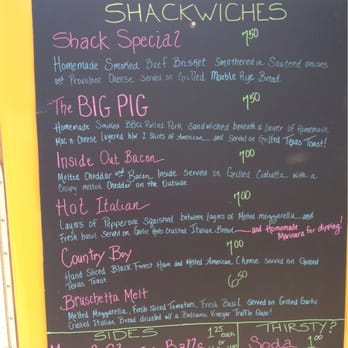 SHACKWICHES
Shack Special 7.50
Homemade Smoked Beef Brisket Smothered in Sauteed onions
and Provolone Cheese Served on Grilled Marble Rye Bread.
The BIG PIG 7.50
Homemade Smoked BBQ Pulled Pork Sandwiched beneath a layer of Homemade
Mac n Cheese layered b/w 2 Slices of American and Served on Grilled Texas Toast!
Inside Out Bacon 7.00
Melted Cheddar and Bacon Inside Served on Grilled Ciabatta with a
Crispy melted Cheddar on the Outside.
Hot Italian 7.00
Layers of Pepperoni Squished between layers of Melted mozzarella and
Fresh basil Served on Garlic Crusted Italian Bread and Homemade
Marinara for dipping!
Country Boy 7.00
Hand Sliced Black Forest Ham and Melted American Cheese Served on Grilled
Texas Toast
Bruschetta Melt 6.50
Melted Mozzarella, Fresh Sliced Tomatoes, Fresh Basil Served on Grilled Garlic
Crusted Italian Bread drizzled w/ a Balsamic Vinegar Truffle Glaze!
SIDES 1.25 each
THIRSTY?
Balls
Soda 1.00